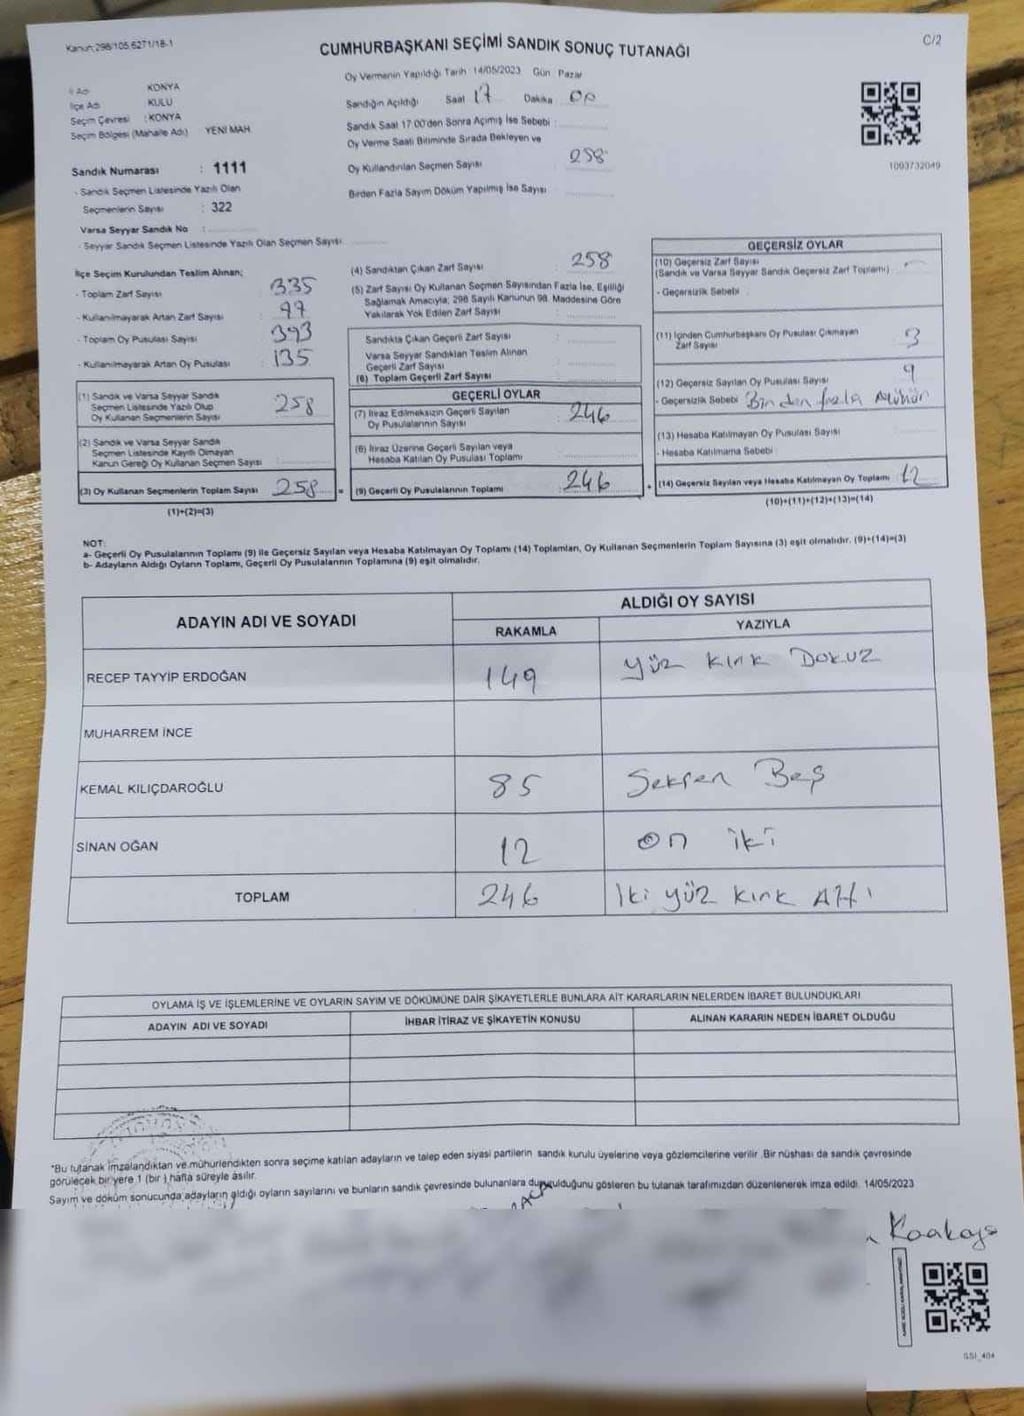 Kanun;298/105,6271/18-1
C/2
CUMHURBAŞKANI SEÇİMİ SANDIK SONUÇ TUTANAĞI
Oy Vermenin Yapıldığı Tarih 14/05/2023 Gün Pazar
İl Adı KONYA
İlçe Adı KULU
Seçim Çevresi : KONYA
Seçim Bölgesi (Mahalle Adı) YENİ MAH.
Sandığın Açıldığı Saat 17 Dakika 00
Sandık Saat 17:00'den Sonra Açımış İse Sebebi :
Oy Verme Saati Bitiminde Sırada Bekleyen ve
Oy Kullandırılan Seçmen Sayısı 258
Birden Fazla Sayım Döküm Yapılmış İse Sayısı
1093732049
Sandık Numarası : 1111
- Sandık Seçmen Listesinde Yazılı Olan
Seçmenlerin Sayısı : 322
Varsa Seyyar Sandık No :
- Seyyar Sandık Seçmen Listesinde Yazılı Olan Seçmen Sayısı
İlçe Seçim Kurulundan Teslim Alınan;
- Toplam Zarf Sayısı : 335
- Kullanılmayarak Artan Zarf Sayısı : 77
- Toplam Oy Pusulası Sayısı : 393
- Kullanılmayarak Artan Oy Pusulası : 135
(1) Sandık ve Varsa Seyyar Sandık
Seçmen Listesinde Yazılı Olup
Oy Kullanan Seçmenlerin Sayısı 258
(2) Sandık ve Varsa Seyyar Sandık
Seçmen Listesinde Kayıtlı Olmayan
Kanun Gereği Oy Kullanan Seçmen Sayısı
(3) Oy Kullanan Seçmenlerin Toplam Sayısı 258 =
(1)+(2)=(3)
(4) Sandıktan Çıkan Zarf Sayısı : 258
(5) Zarf Sayısı Oy Kullanan Seçmen Sayısından Fazla İse, Eşitliği
Sağlamak Amacıyla; 298 Sayılı Kanunun 98. Maddesine Göre
Yakılarak Yok Edilen Zarf Sayısı
Sandıkta Çıkan Geçerli Zarf Sayısı :
Varsa Seyyar Sandıktan Teslim Alınan
Geçerli Zarf Sayısı
(6) Toplam Geçerli Zarf Sayısı
GEÇERLİ OYLAR
(7) İtiraz Edilmeksizin Geçerli Sayılan
Oy Pusulalarının Sayısı 246
(8) İtiraz Üzerine Geçerli Sayılan veya
Hesaba Katılan Oy Pusulası Toplamı
(9) Geçerli Oy Pusulalarının Toplamı 246 +
GEÇERSİZ OYLAR
(10) Geçersiz Zarf Sayısı
(Sandık ve Varsa Seyyar Sandık Geçersiz Zarf Toplamı)
- Geçersizlik Sebebi
(11) İçinden Cumhurbaşkanı Oy Pusulası Çıkmayan
Zarf Sayısı 3
(12) Geçersiz Sayılan Oy Pusulası Sayısı 9
- Geçersizlik Sebebi Birden fazla Mühür
(13) Hesaba Katılmayan Oy Pusulası Sayısı
- Hesaba Katılmama Sebebi
(14) Geçersiz Sayılan veya Hesaba Katılmayan Oy Toplamı 12
(10)+(11)+(12)+(13)=(14)
NOT:
a- Geçerli Oy Pusulalarının Toplamı (9) ile Geçersiz Sayılan veya Hesaba Katılmayan Oy Toplamı (14) Toplamları, Oy Kullanan Seçmenlerin Toplam Sayısına (3) eşit olmalıdır. (9)+(14)=(3)
b- Adayların Aldığı Oyların Toplamı, Geçerli Oy Pusulalarının Toplamına (9) eşit olmalıdır.
ADAYIN ADI VE SOYADI ALDIĞI OY SAYISI
RAKAMLA YAZIYLA
RECEP TAYYİP ERDOĞAN 149 Yüz Kırk Dokuz
MUHARREM İNCE
KEMAL KILIÇDAROĞLU 85 Seksen Beş
SİNAN OĞAN 12 on iki
TOPLAM 246 İki yüz Kırk Altı
OYLAMA İŞ VE İŞLEMLERİNE VE OYLARIN SAYIM VE DÖKÜMÜNE DAİR ŞİKAYETLERLE BUNLARA AİT KARARLARIN NELERDEN İBARET BULUNDUKLARI
ADAYIN ADI VE SOYADI İHBAR İTİRAZ VE ŞİKAYETİN KONUSU ALINAN KARARIN NEDEN İBARET OLDUĞU
*Bu tutanak imzalandıktan ve mühürlendikten sonra seçime katılan adayların ve talep eden siyasi partilerin sandık kurulu üyelerine veya gözlemcilerine verilir. Bir nüshası da sandık çevresinde
görülecek bir yere 1 (bir ) hafta süreyle asılır.
Sayım ve döküm sonucunda adayların aldığı oyların sayılarını ve bunların sandık çevresinde bulunanlara duyurulduğunu gösteren bu tutanak tarafımızdan düzenlenerek imza edildi. 14/05/2023
GSI_404